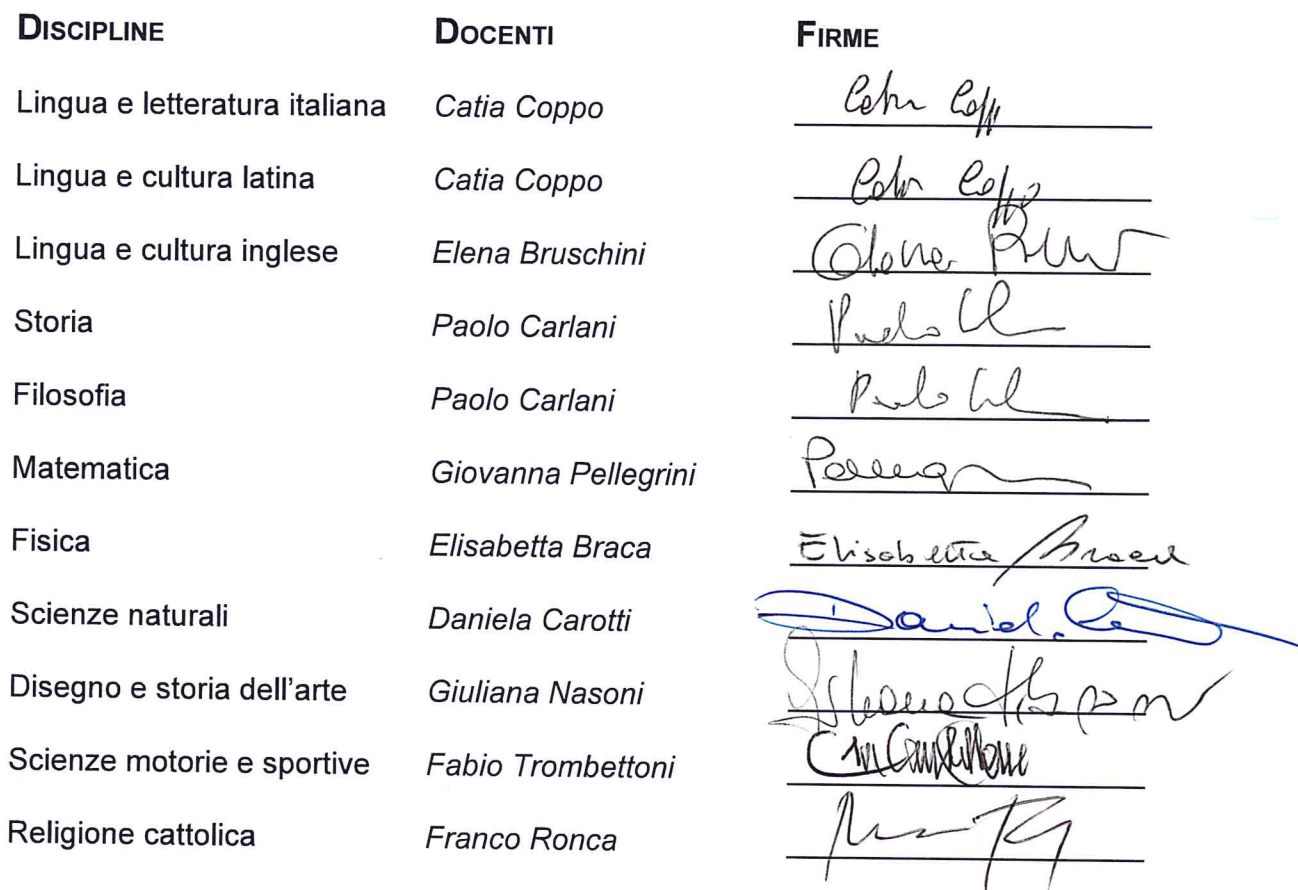 DISCIPLINE DOCENTI FIRME
Lingua e letteratura italiana Catia Coppo
Lingua e cultura latina Catia Coppo
Lingua e cultura inglese Elena Bruschini
Storia Paolo Carlani
Filosofia Paolo Carlani
Matematica Giovanna Pellegrini
Fisica Elisabetta Braca Elisabetta Braca
Scienze naturali Daniela Carotti
Disegno e storia dell'arte Giuliana Nasoni
Scienze motorie e sportive Fabio Trombettoni
Religione cattolica Franco Ronca